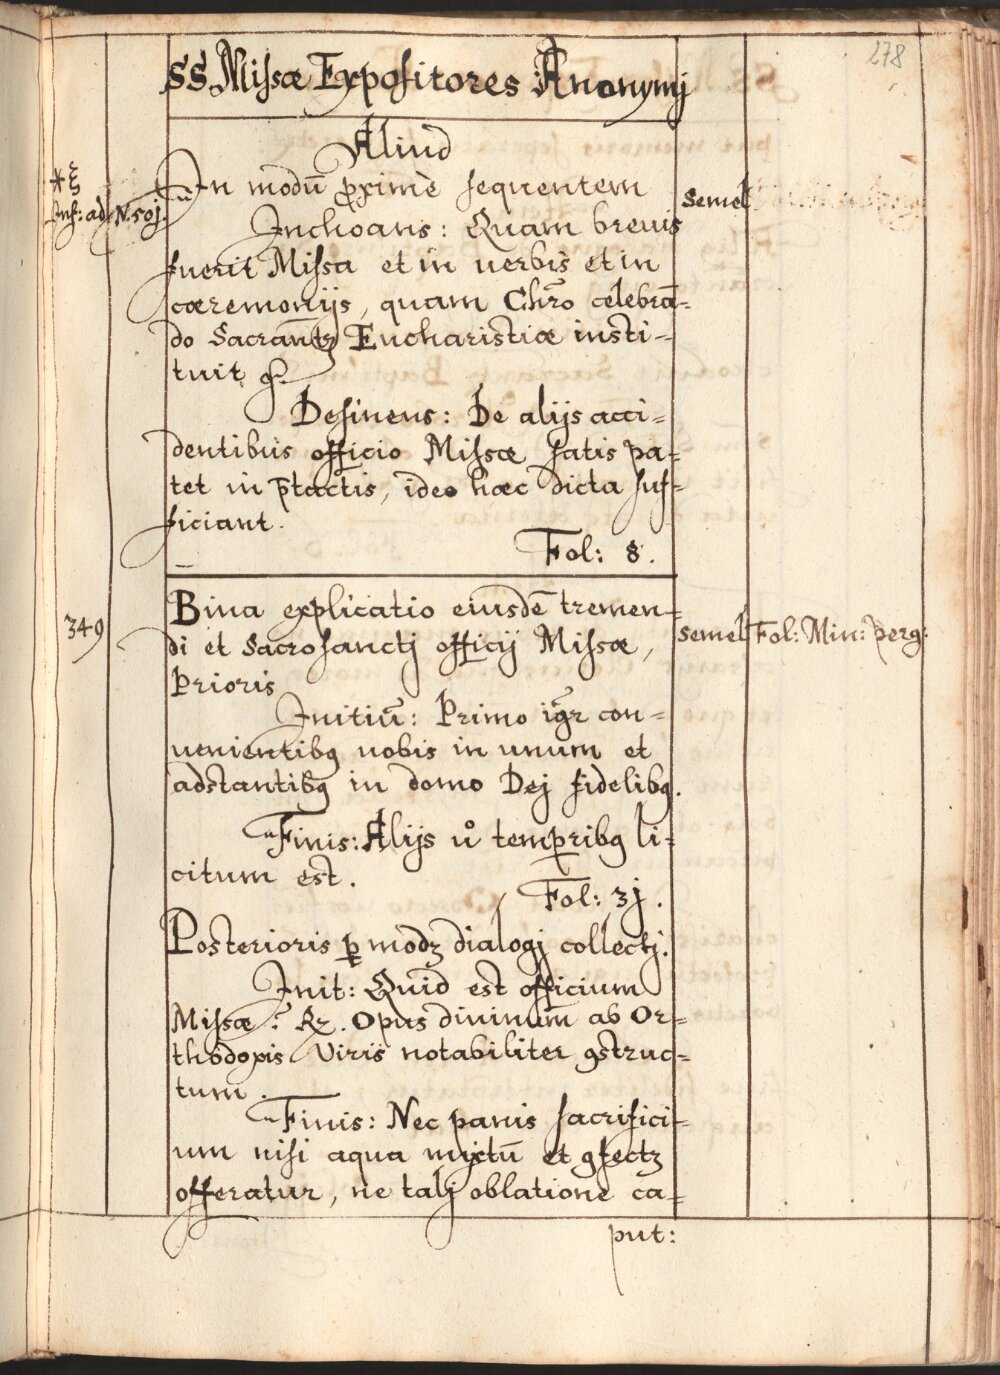 278
SS. Missæ Expositores Anonymj
Aliud
In modū proximè sequentem
Semel
Inf: ad N. 50j.
Inchoans: Quam breuis
fuerit Missa et in uerbis et in
cæremonijs, quam Chr̄o celebrā=
do Sacrān̄tꝫ Eucharistiæ insti=
tuit
Desinens: De alijs acci=
dentibus officio Missæ satis pa=
tet in p̄tactis, ideo hæc dicta suf=
ficiant.
Fol: 8.
349
Bina explicatio eiusdē tremen=
Semel
Fol: Min: perg:
di et Sacrosanctj officij Missæ,
Prioris
Initiū: Primo igr̄ con=
uenientibꝫ nobis in unum et
adstantibꝫ in domo Dej fidelibꝫ.
Finis: Alijs u̐ temꝑribꝫ li=
citum est.
Fol: 3j.
Posterioris ꝑ modꝫ dialogj collectj.
Init: Quid est officium
Missæ? Rz. Opus diuinum ab Or=
thodoxis Viris notabiliter ꝯstruc=
tum.
Finis: Nec panis sacrifici=
um nisi aqua mixtū et ꝯfectꝫ
offeratur, ne talj oblatione ca=
put: